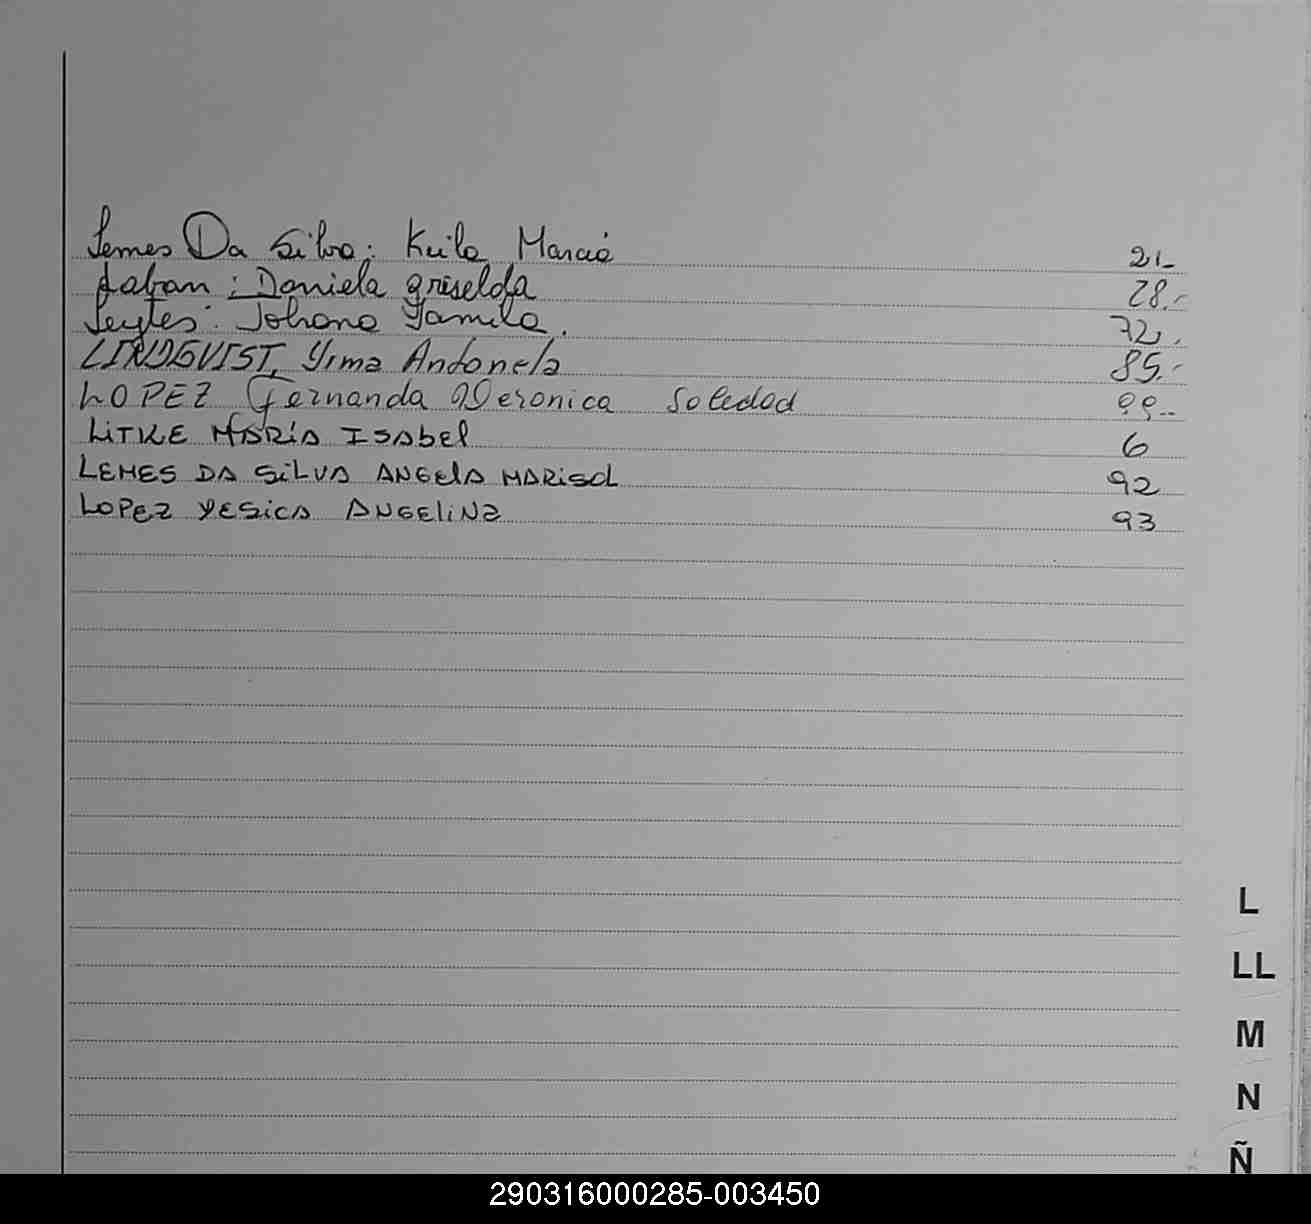 Lemes Da Silva: Keila Marcia 21_
Laban : Daniela Griselda 28.-
Leytes: Johana Yamila. 72.
LINDGVIST, Yrma Antonela 85.-
LOPEZ Fernanda Veronica Soledad 99..
LiTKE MARÍA ISABEL 6
LEMES DA SiLVA ANGELA MARisol 92
LOPEZ YESicA ANGELiNA 93
L
LL
M
N
Ñ
290316000285-003450